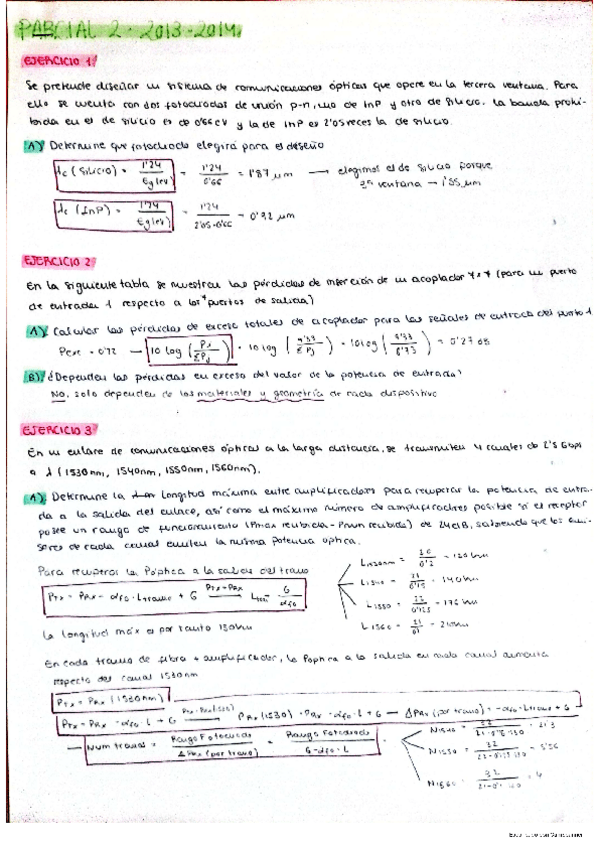 PARCIAL 2 - 2013-2014
EJERCICIO 1
Se pretende diseñar un sistema de comunicaciones ópticas que opere en la tercera ventana. Para
ello se cuenta con dos fotodiodos de unión p-n, uno de InP y otro de silicio. La banda prohi-
bida en el de silicio es de 0'66 eV y la de InP es 2'05 veces la de silicio.
A) Determine que fotodiodo elegiría para el diseño
λc (Silicio) = 1'24 / Eg(ev) = 1'24 / 0'66 = 1'87 μm → elegimos el de silicio porque
3ª ventana → 1'55 μm
λc (InP) = 1'24 / Eg(ev) = 1'24 / 2'05·0'66 = 0'92 μm
EJERCICIO 2
En la siguiente tabla se muestran las pérdidas de inserción de un acoplador 4x4 (para un puerto
de entrada 1 respecto a los 4 puertos de salida)
A) Calcular las pérdidas de exceso totales de acoplador para las señales de entrada del puerto 1
Pexc = 10 log
B) ¿Dependen las pérdidas en exceso del valor de la potencia de entrada?
No, solo dependen de los materiales y geometría de cada dispositivo
EJERCICIO 3
En un enlace de comunicaciones ópticas a larga distancia, se transmiten 4 canales de 2'5 Gbps
a λ (1530nm, 1540nm, 1550nm, 1560nm).
A) Determine la longitud máxima entre amplificadores para recuperar la potencia de entra-
da a la salida del enlace, así como el máximo número de amplificadores posible si el receptor
posee un rango de funcionamiento (Pmax recibida - Pmin recibida) de 24dB, sabiendo que los emi-
sores de cada canal emiten la misma potencia óptica.
Para recuperar la Póptica a la salida del tramo
PTx = PRx - αfo · Ltramo + G
la longitud máx es por tanto 130km
En cada tramo de fibra + amplificador, la Póptica a la salida en cada canal aumenta
respecto del canal 1530nm
PTx = PRx (1530nm)
PTx = PRx - αfo · L + G
Num tramos = Rango Fotodiodo / ΔPRx (por tramo) = Rango Fotodiodo / G-αfo·L